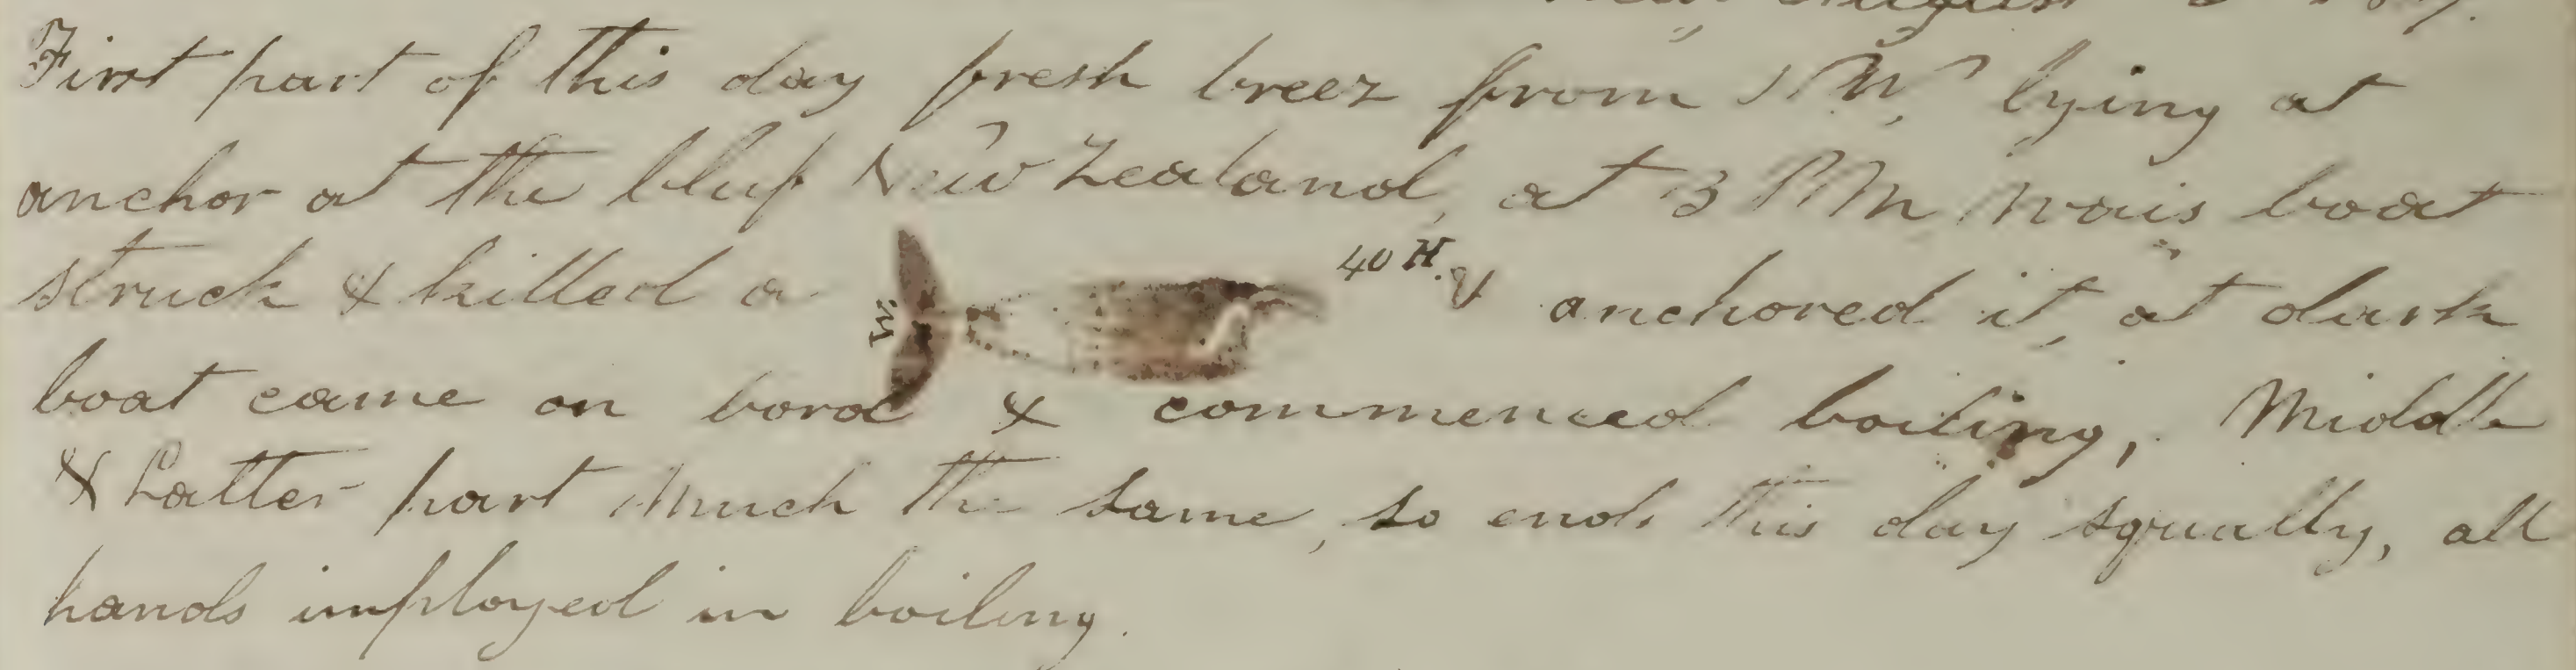 First part of this day fresh breez from lying at
anchor at the bluf New Zealand, at 3 PM boat
struck & killed a W. 40 H. & anchored it, at dark
boat came on bord & commenced boiling, Middle
& Latter part Much the same, so ends this day squally, all
hands imployed in boiling.